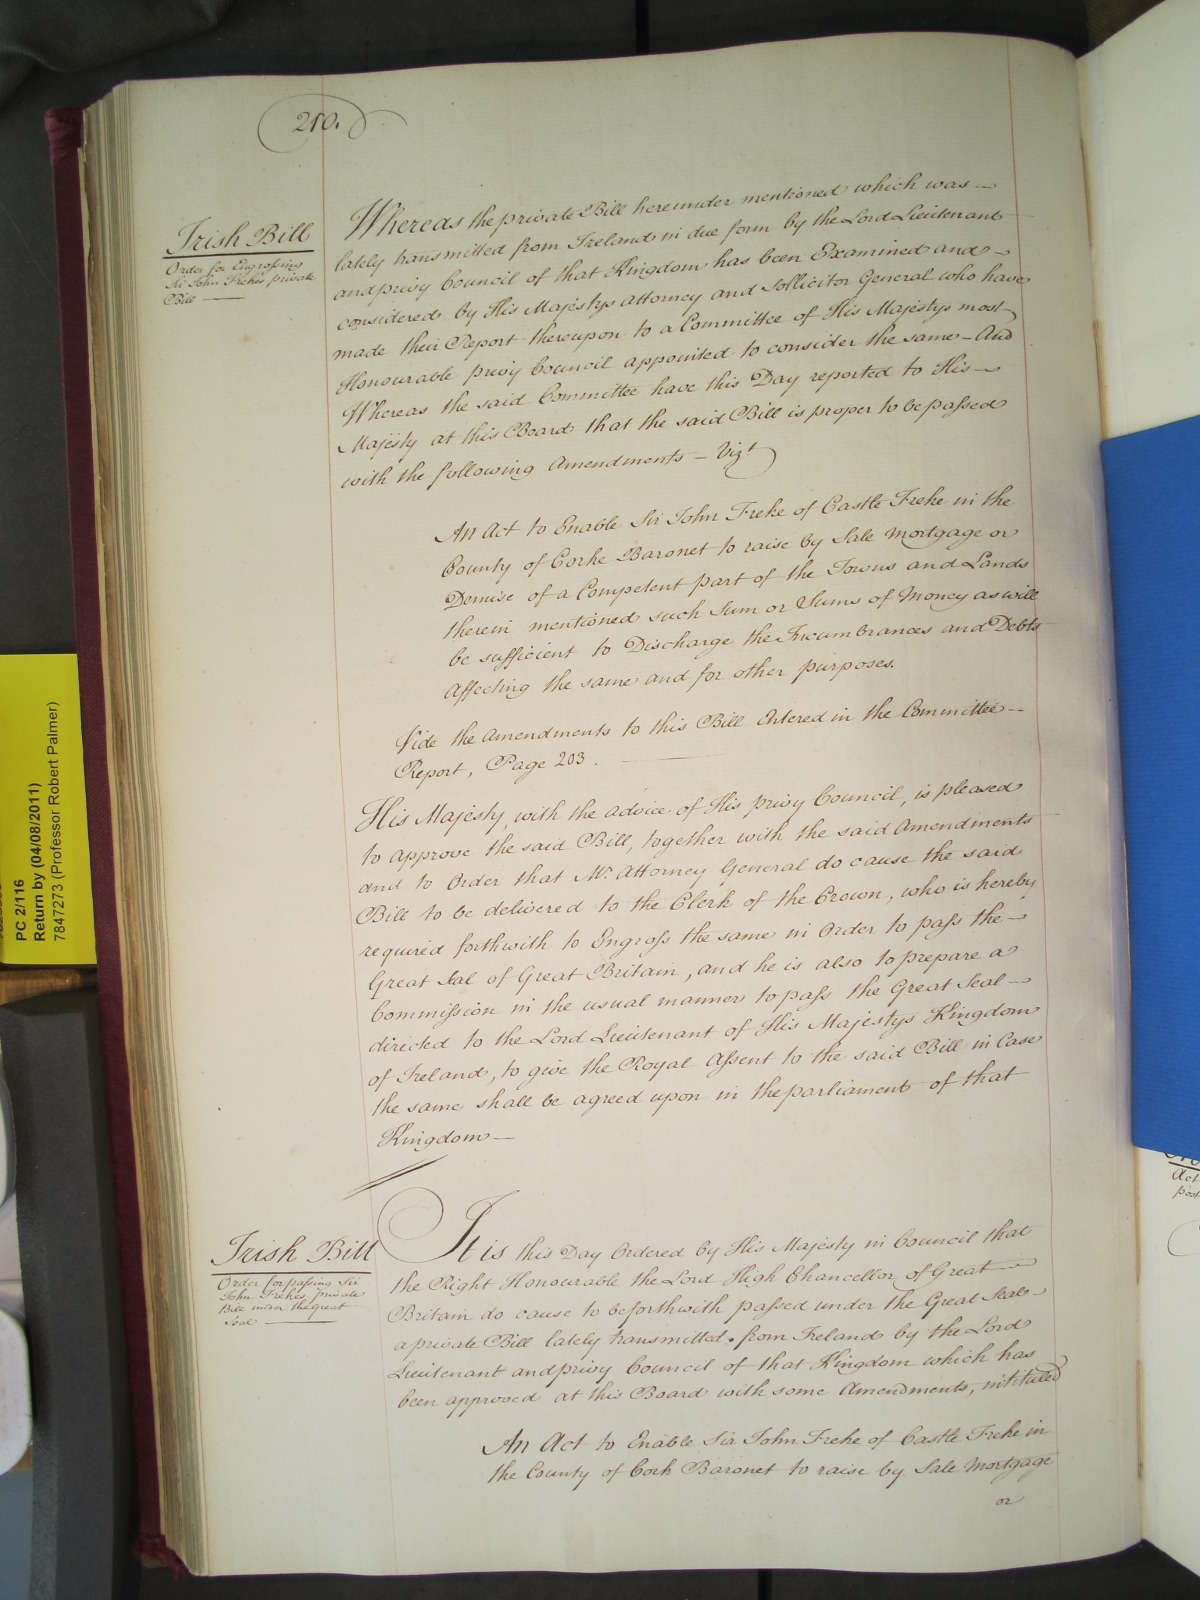 210.
Irish Bill
Order for Engrossing
Sir John Frekes private
Bill —
Whereas the private Bill hereunder mentioned which was —
lately transmitted from Ireland in due form by the Lord Lieutenant
and privy Council of that Kingdom has been Examined and —
considered by His Majestys Attorney and Sollicitor General who have
made their Report thereupon to a Committee of His Majestys most
Honourable privy Council appointed to consider the same — And
Whereas the said Committee have this Day reported to His —
Majesty at this Board that the said Bill is proper to be passed
with the following Amendments — Vizt
An Act to Enable Sir John Freke of Castle Freke in the
County of Corke Baronet to raise by Sale Mortgage or
Demise of a Competent part of the Towns and Lands
therein mentioned such Sum or Sums of Money as will
be sufficient to Discharge the Incumbrances and Debts
Affecting the same and for other purposes.
Vide the Amendments to this Bill Entered in the Committee —
Report, Page 203. —
His Majesty, with the advice of His privy Council, is pleased
to approve the said Bill, together with the said Amendments
and to Order that Mr. Attorney General do cause the said
Bill to be delivered to the Clerk of the Crown, who is hereby
required forthwith to Engross the same in Order to pass the —
Great Seal of Great Britain, and he is also to prepare a
Commission in the usual manner to pass the Great Seal —
directed to the Lord Lieutenant of His Majestys Kingdom
of Ireland, to give the Royal Assent to the said Bill in Case
the same shall be agreed upon in the parliament of that
Kingdom —
Irish Bill
Order for passing Sir
John Frekes private
Bill under the Great
Seal —
It is this Day Ordered by His Majesty in Council that
the Right Honourable the Lord High Chancellor of Great —
Britain do cause to be forthwith passed under the Great Seal —
a private Bill lately transmitted from Ireland by the Lord
Lieutenant and privy Council of that Kingdom which has
been approved at this Board with some Amendments, intituled
An Act to Enable Sir John Freke of Castle Freke in
the County of Cork Baronet to raise by Sale Mortgage
or
PC 2/116
Return by (04/08/2011)
7847273 (Professor Robert Palmer)
Act